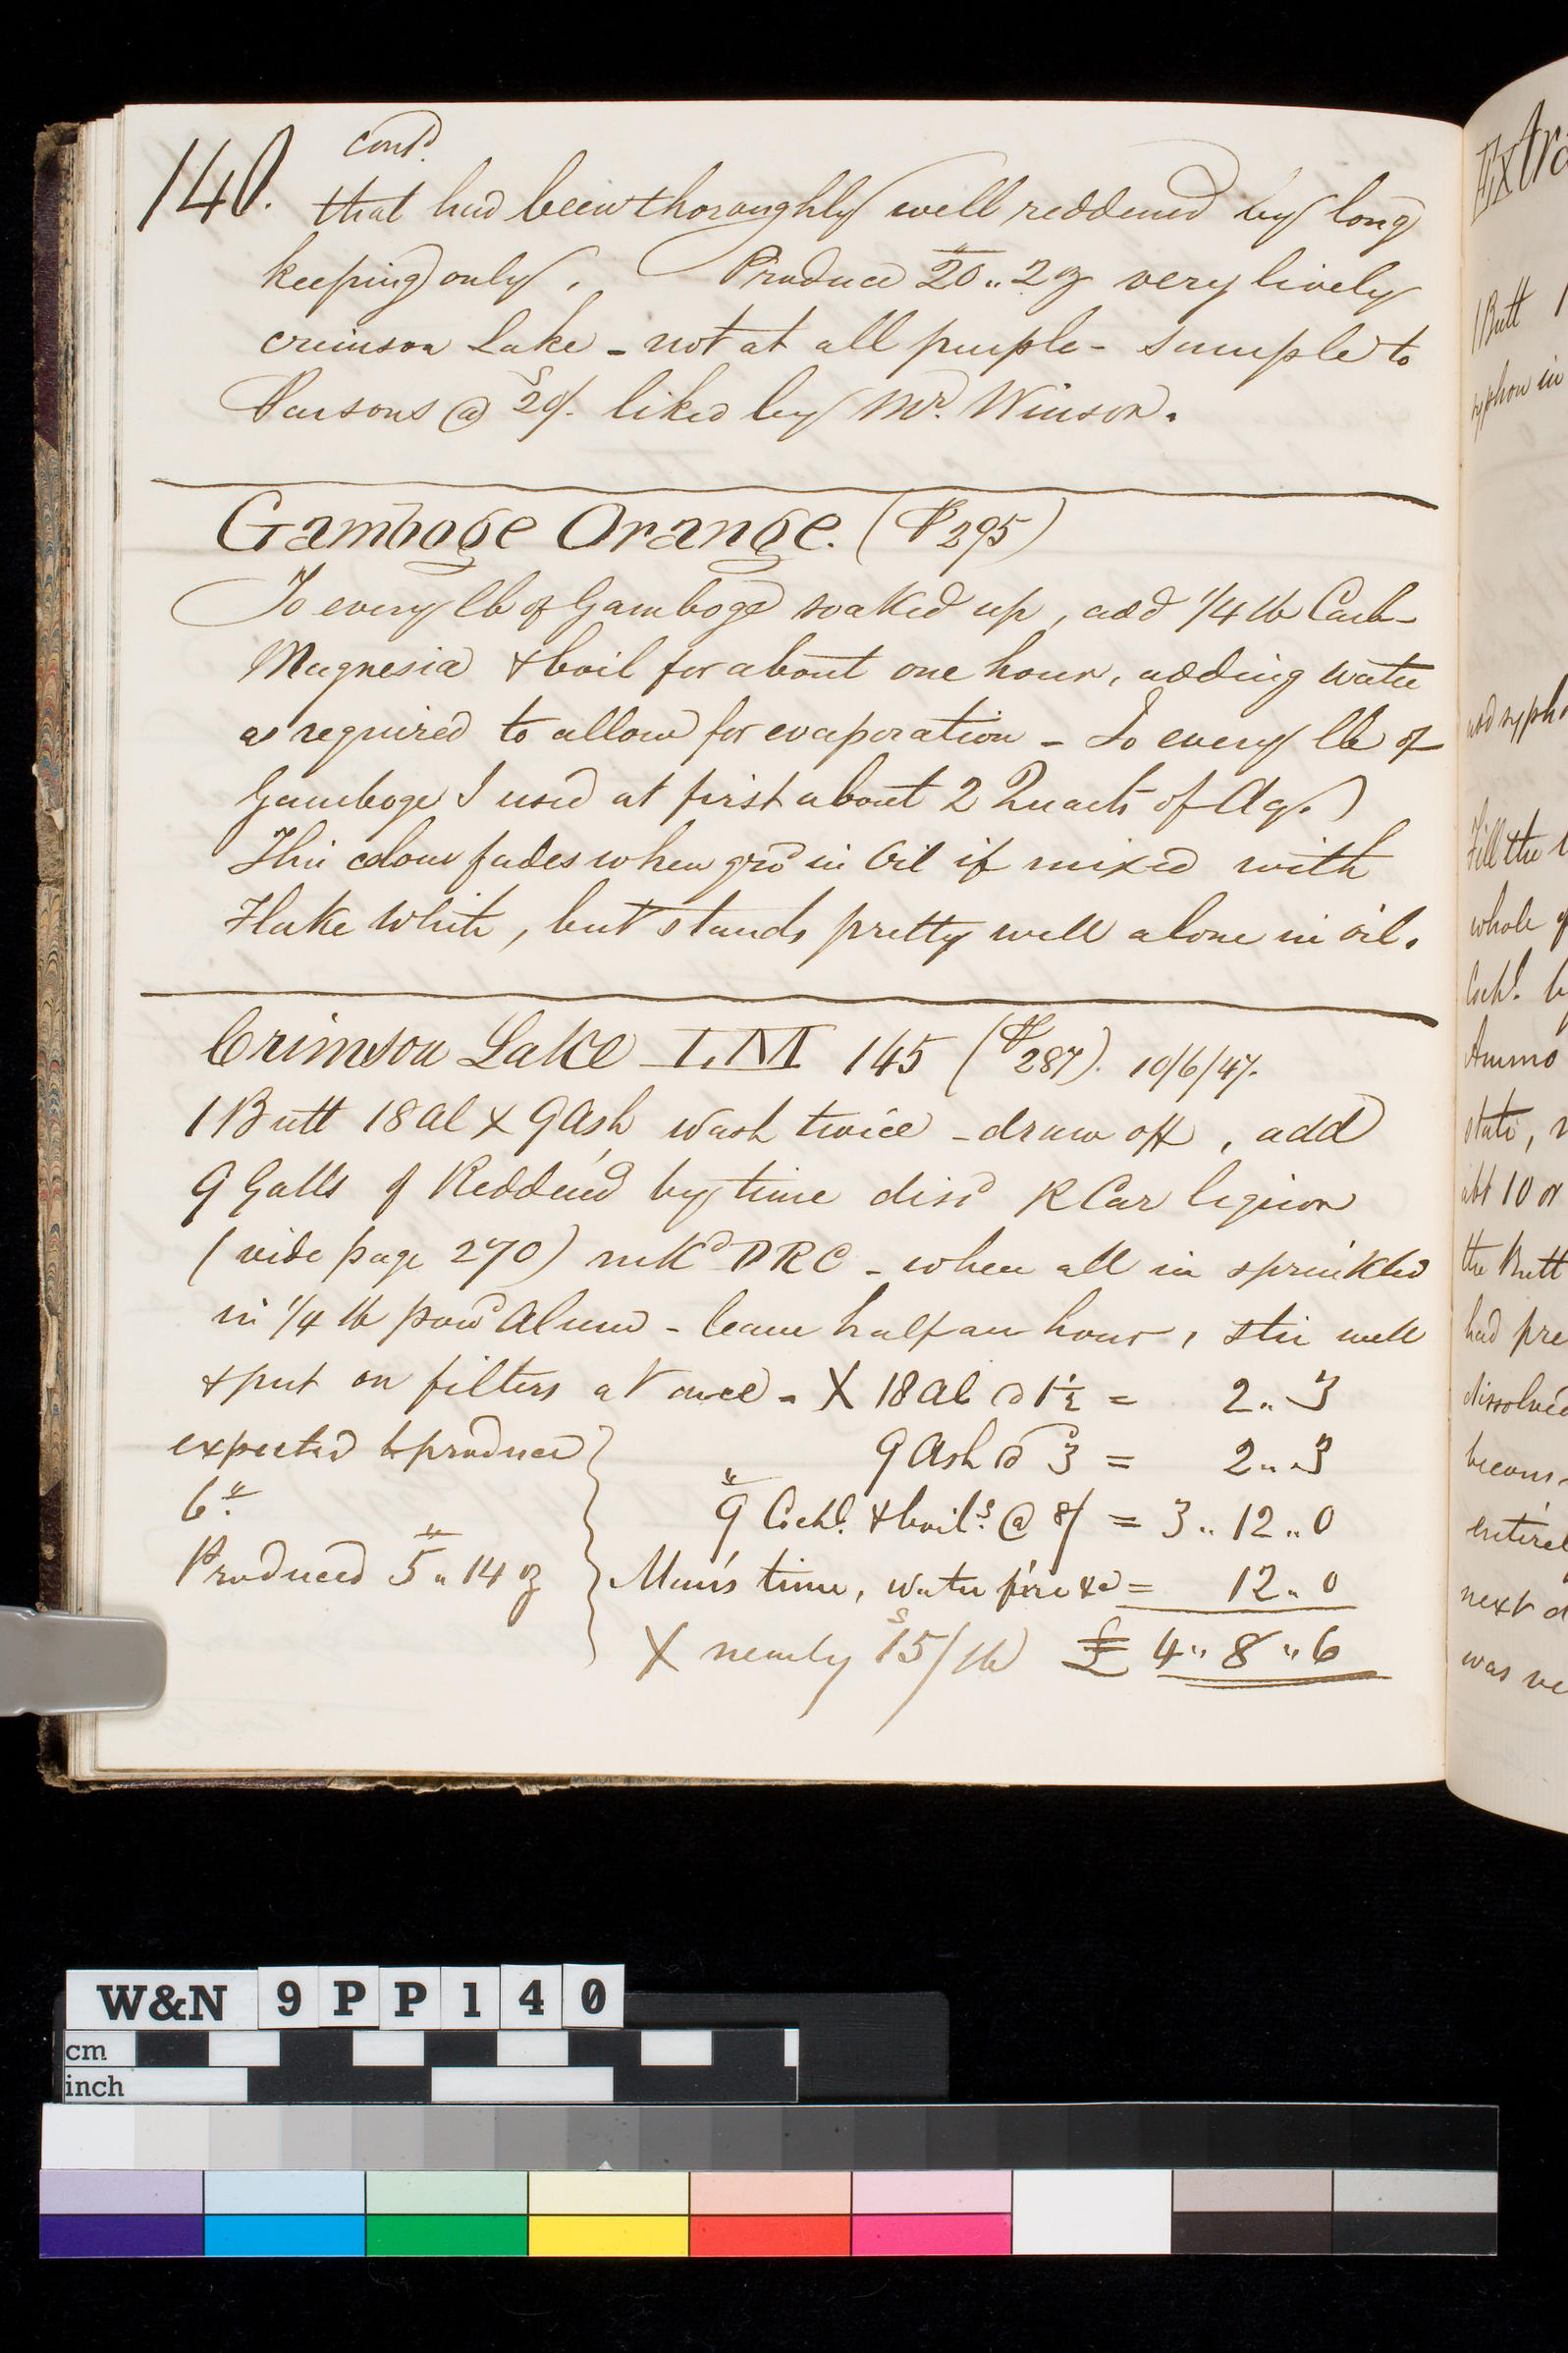 contd.
140. that had been thoroughly well reddened by long
keeping only. Produce 20 lb.. 2 oz very lively
crimson Lake - not at all purple - sample to
Parsons @ 20s/. liked by Mr. Winsor.
Gamboge Orange. (P 295)
To every lb of Gamboge soaked up, add 1/4 lb Carb-
Magnesia & boil for about one hour, adding water
as required to allow for evaporation - To every lb of
Gamboge I used at first about 2 Quarts of Aq.)
This colour fades when grd in Oil if mixed with
Flake White, but stands pretty well alone in oil.
Crimson Lake LM 145 (P 287). 10/6/47.
1 Butt 18 Al X 9 Ash, wash twice - draw off, add
9 Galls of Reddend by time disd R Car liquor
(vide page 270) mkd DRC - when all in sprinkled
in 1/4 lb powd Alum - leave half an hour, stir well
& put on filters at once - X 18 Al @ 1 1/2 = 2.. 3
expected to produce 9 Ash @ 3 = 2.. 3
6 lb. 9 lb Cochl. & boils. @ 8/ = 3.. 12.. 0
Produced 5 lb.. 14 oz Men's time, water fire &c = 12.. 0
X nearly 15s/lb £ 4.. 8.. 6
Extra
1 Butt
syphon in
and syph
Fill the
whole
Cochl. b
Ammo
state,
abt 10 or
the Butt
had pre
dissolved
becom
entirel
next d
was ve
W&N 9PP140
cm
inch